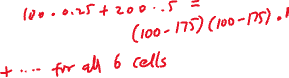 100 · 0.25 + 200 · .5 =
(100-175)(100-175) .1
+ .... for all 6 cells